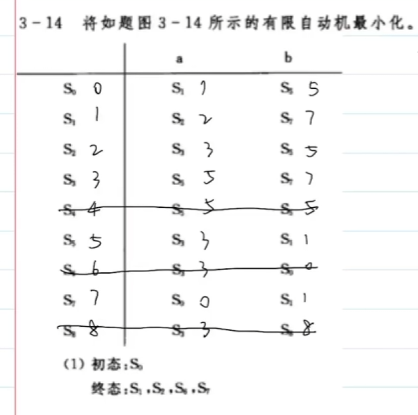 3-14 将如题图 3-14 所示的有限自动机最小化。
a b
S₀ 0 S₁ 1 S₅ 5
S₁ 1 S₂ 2 S₇ 7
S₂ 2 S₃ 3 S₅ 5
S₃ 3 S₅ 5 S₇ 7
S₄ 4 S₅ 5 S₅ 5
S₅ 5 S₃ 3 S₁ 1
S₆ 6 S₃ 3 S₀ 0
S₇ 7 S₀ 0 S₁ 1
S₈ 8 S₃ 3 S₈ 8
(1) 初态:S₀
终态:S₁,S₂,S₇